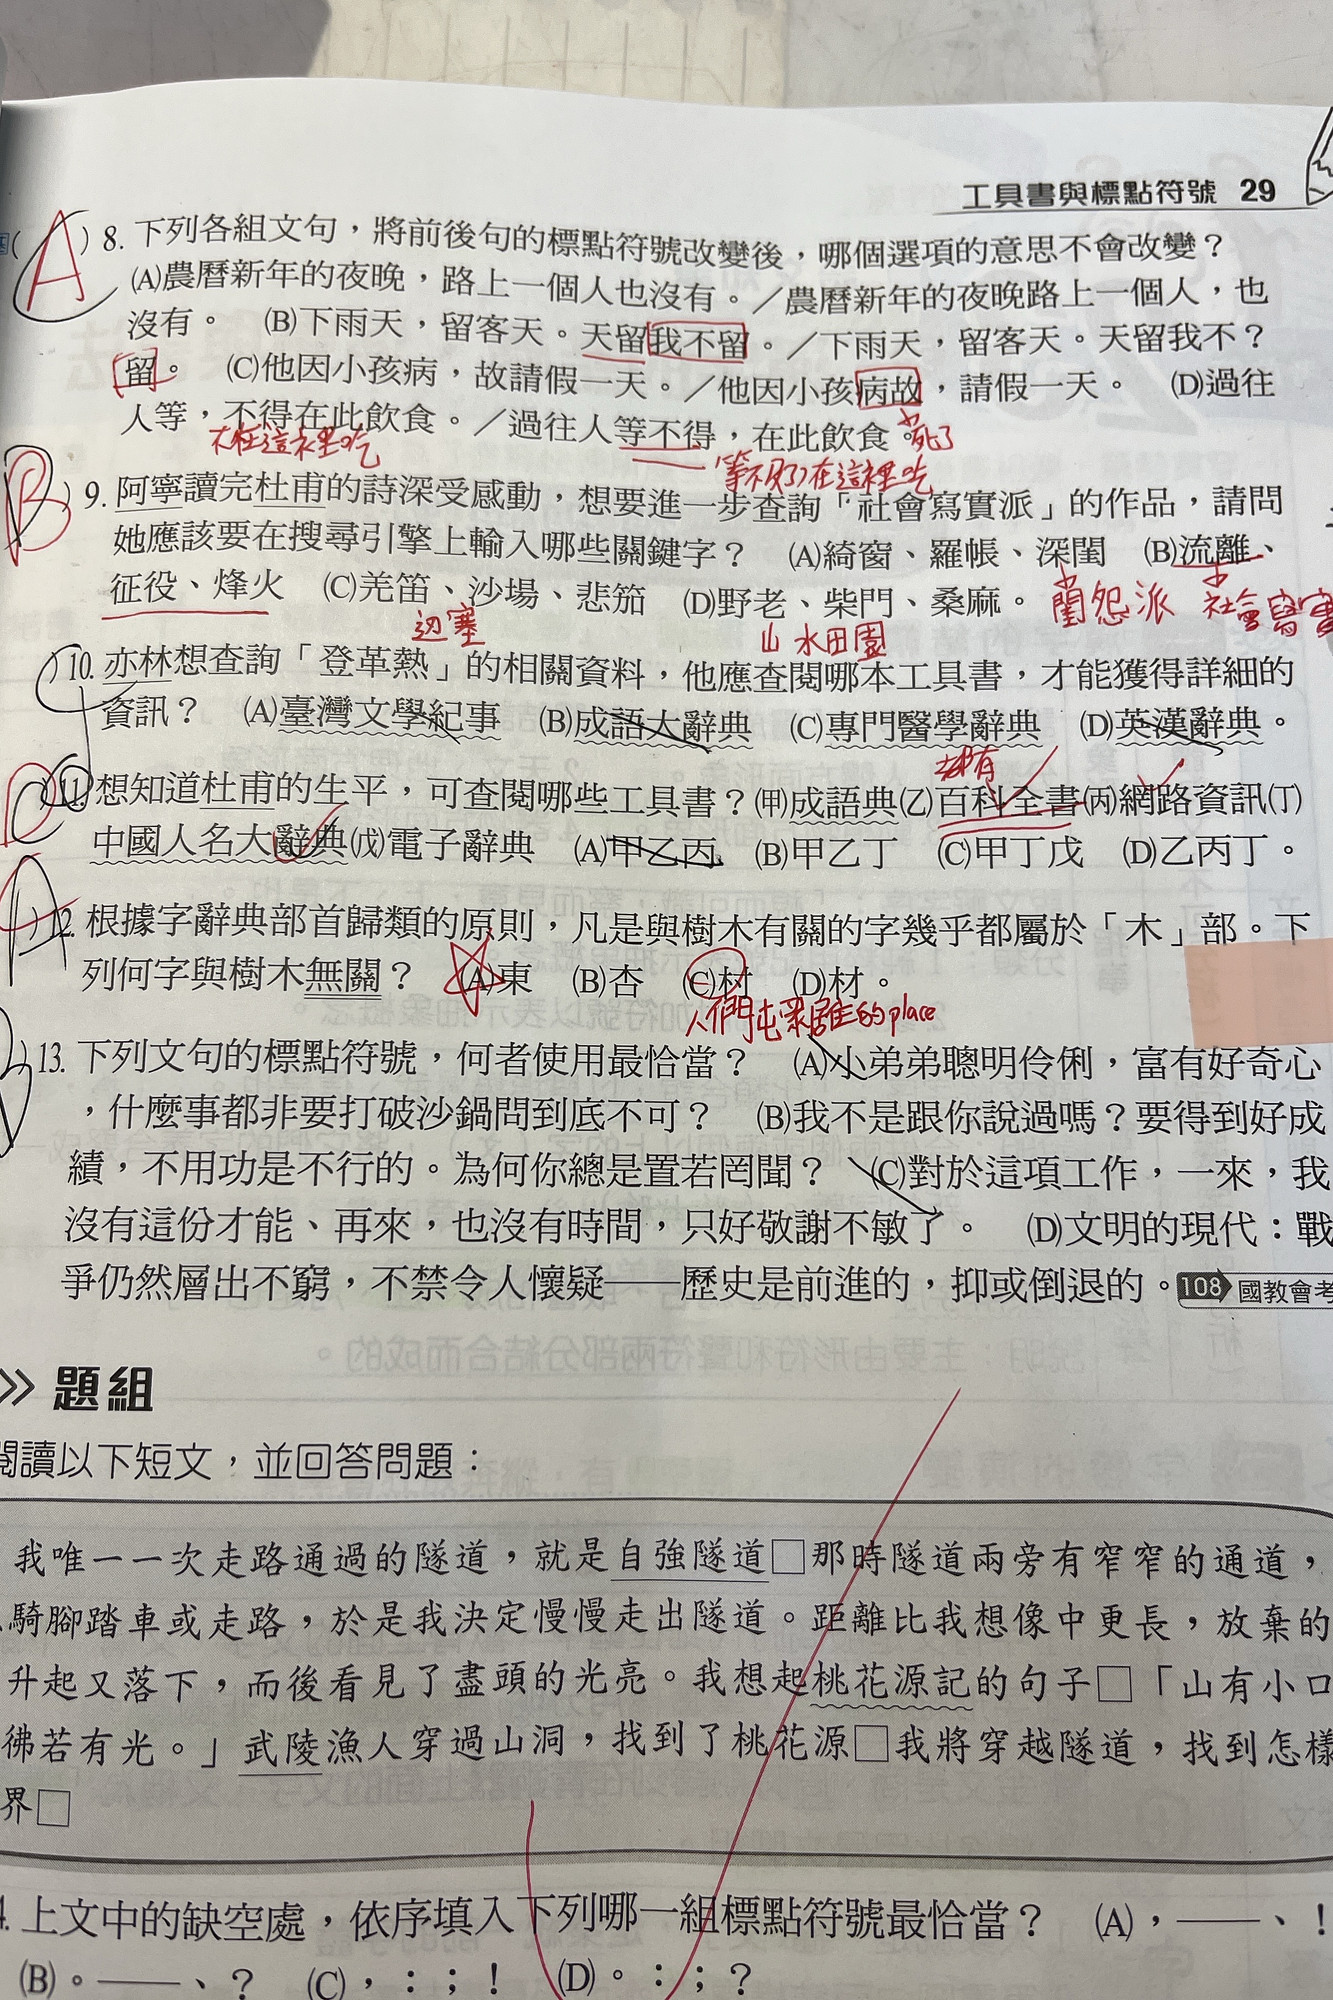 工具書與標點符號 29
( A ) 8. 下列各組文句，將前後句的標點符號改變後，哪個選項的意思不會改變？
(A)農曆新年的夜晚，路上一個人也沒有。／農曆新年的夜晚路上一個人，也
沒有。 (B)下雨天，留客天。天留我不留。／下雨天，留客天。天留我不？
留。 (C)他因小孩病，故請假一天。／他因小孩病故，請假一天。 (D)過往
人等，不得在此飲食。／過往人等不得，在此飲食。
死了
等不及了，在這裡吃
B ) 9. 阿寧讀完杜甫的詩深受感動，想要進一步查詢「社會寫實派」的作品，請問
她應該要在搜尋引擎上輸入哪些關鍵字？ (A)綺窗、羅帳、深閨 (B)流離、
征役、烽火 (C)羌笛、沙場、悲笳 (D)野老、柴門、桑麻。
閨怨派 社會寫實
边塞 山水田園
) 10. 亦林想查詢「登革熱」的相關資料，他應查閱哪本工具書，才能獲得詳細的
資訊？ (A)臺灣文學紀事 (B)成語大辭典 (C)專門醫學辭典 (D)英漢辭典。
都有
D ) 11. 想知道杜甫的生平，可查閱哪些工具書？(甲)成語典(乙)百科全書(丙)網路資訊(丁)
中國人名大辭典(戊)電子辭典 (A)甲乙丙 (B)甲乙丁 (C)甲丁戊 (D)乙丙丁。
A ) 12. 根據字辭典部首歸類的原則，凡是與樹木有關的字幾乎都屬於「木」部。下
列何字與樹木無關？ (A)東 (B)杏 (C)村 (D)材。
人們屯聚 的place
) 13. 下列文句的標點符號，何者使用最恰當？ (A)小弟弟聰明伶俐，富有好奇心
，什麼事都非要打破沙鍋問到底不可？ (B)我不是跟你說過嗎？要得到好成
績，不用功是不行的。為何你總是置若罔聞？ (C)對於這項工作，一來，我
沒有這份才能、再來，也沒有時間，只好敬謝不敏了。 (D)文明的現代：戰
爭仍然層出不窮，不禁令人懷疑——歷史是前進的，抑或倒退的。 108 國教會考
題組
閱讀以下短文，並回答問題：
我唯一一次走路通過的隧道，就是自強隧道□那時隧道兩旁有窄窄的通道，
騎腳踏車或走路，於是我決定慢慢走出隧道。距離比我想像中更長，放棄的
升起又落下，而後看見了盡頭的光亮。我想起桃花源記的句子□「山有小口
彿若有光。」武陵漁人穿過山洞，找到了桃花源□我將穿越隧道，找到怎樣
界□
4. 上文中的缺空處，依序填入下列哪一組標點符號最恰當？ (A)，——、！
(B)。——、？ (C)，：；！ (D)。：；？